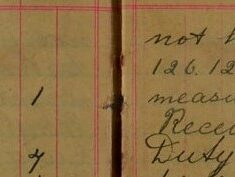 not
126.12
1
measu
Recei
Duty
4